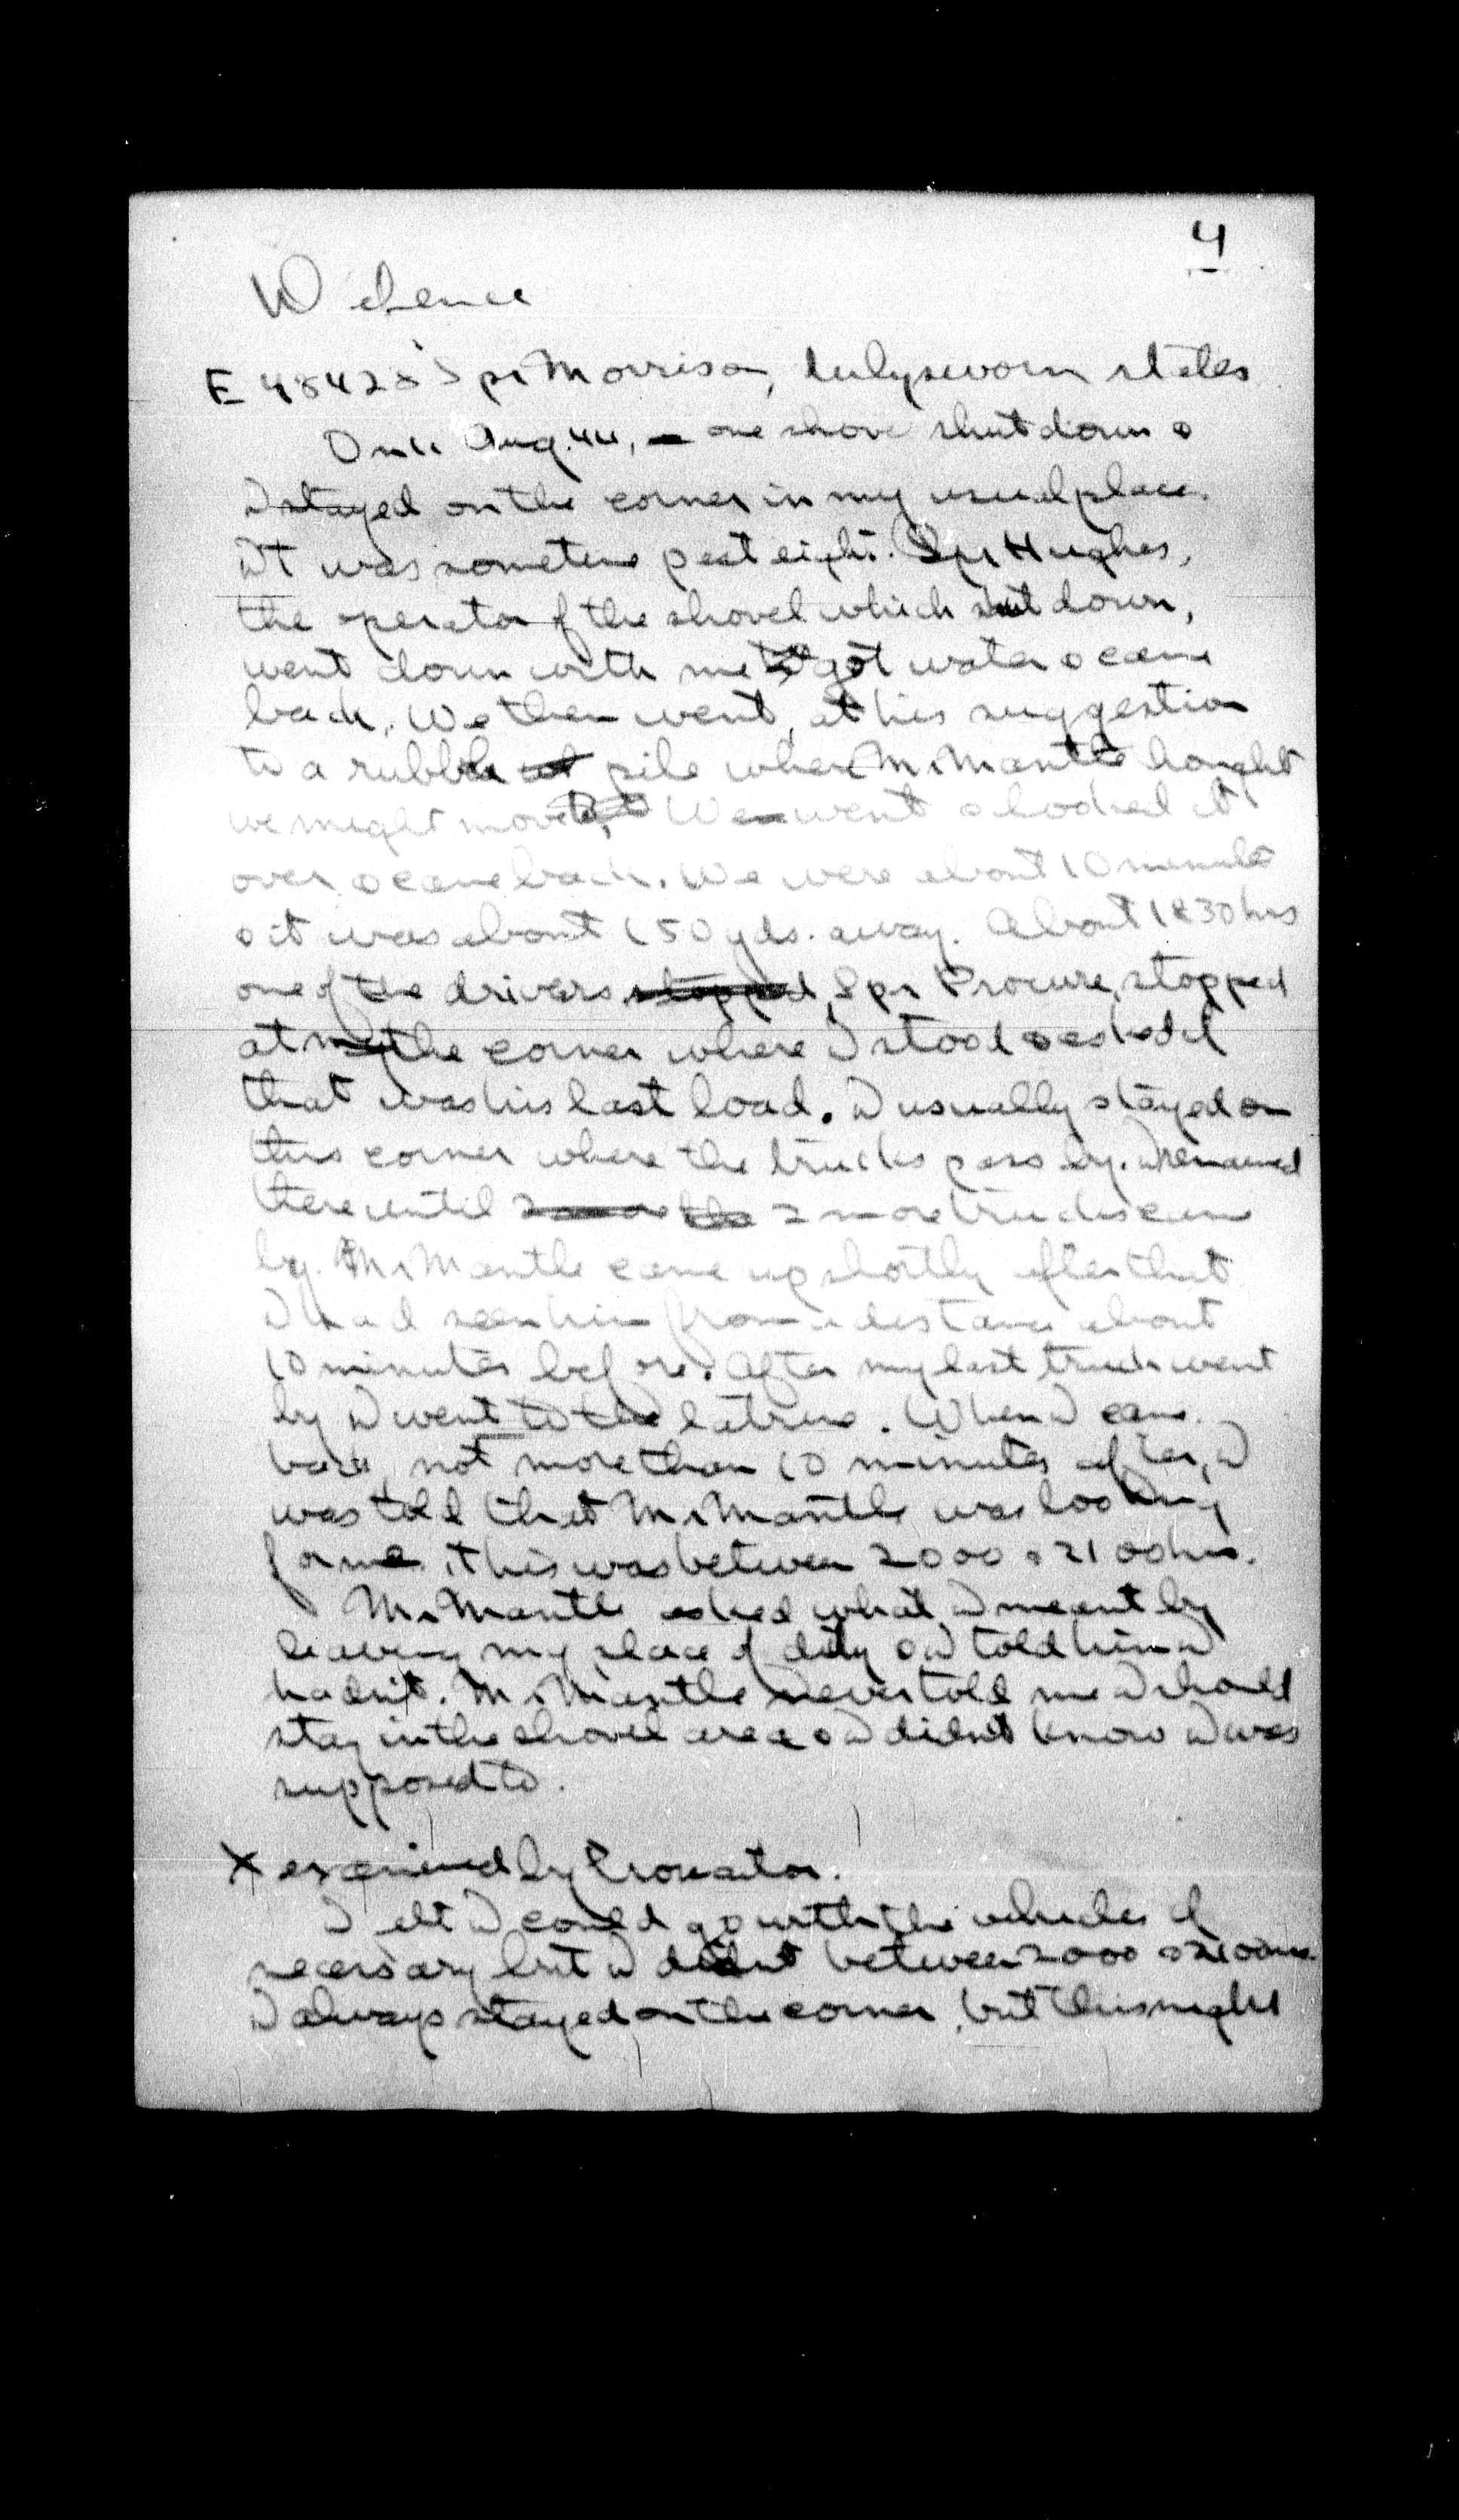 4
Defence
E 48428 Spr Morrison, duly sworn states
On 11 Aug. 44, one shovel shut down &
I stayed on the corner in my usual place.
It was sometime past eight. Spr Hughes,
the operator of the shovel which shut down,
went down with me & got water & came
back. We then went, at his suggestion
to a rubble pile where Mr Mantle thought
we might move to. We went & looked it
over & came back. We were about 10 minutes
& it was about 150 yds. away. About 1830 hrs
one of the drivers stopped, Spr Procure, stopped
at my the corner where I stood & asked if
that was his last load. I usually stayed on
this corner where the trucks pass by. I remained
there until 2 more trucks came
by. Mr Mantle came up shortly after that
I had seen him from a distance about
10 minutes before. After my last truck went
by I went to the latrine. When I came
back, not more than 10 minutes after, I
was told that Mr Mantle was looking
for me. This was between 2000 & 2100 hrs.
Mr Mantle asked what I meant by
leaving my place of duty & I told him I
hadn't. Mr Mantle never told me I should
stay in the shovel area & I didn't know I was
supposed to.
X examined by Prosecutor.
I felt I could go with the vehicles if
necessary but I didn't between 2000 & 2100 hrs.
I always stayed on the corner, but this night